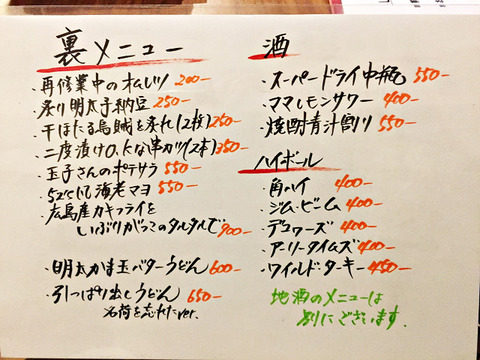 裏メニュー
・再修業中のオムレツ 200-
・炙り明太子納豆 250-
・干ほたる烏賊を炙れ(12枚) 250-
・二度漬けO.Kな串カツ(2本) 350-
・玉子さんのポテサラ 550-
・52℃にて海老マヨ 550-
・広島産カキフライを
いぶりがっこのタルタルで 900-
・明太かま玉バターうどん 600-
・引っぱり出しうどん 650-
名荷を忘れたver.
酒
・スーパードライ中瓶 550-
・ママレモンサワー 400-
・焼酎青汁割り 550-
ハイボール
・角ハイ 400-
・ジム・ビーム 400-
・デュワーズ 400-
・アーリータイムズ 400-
・ワイルド・ターキー 450-
地酒のメニューは
別にございます。